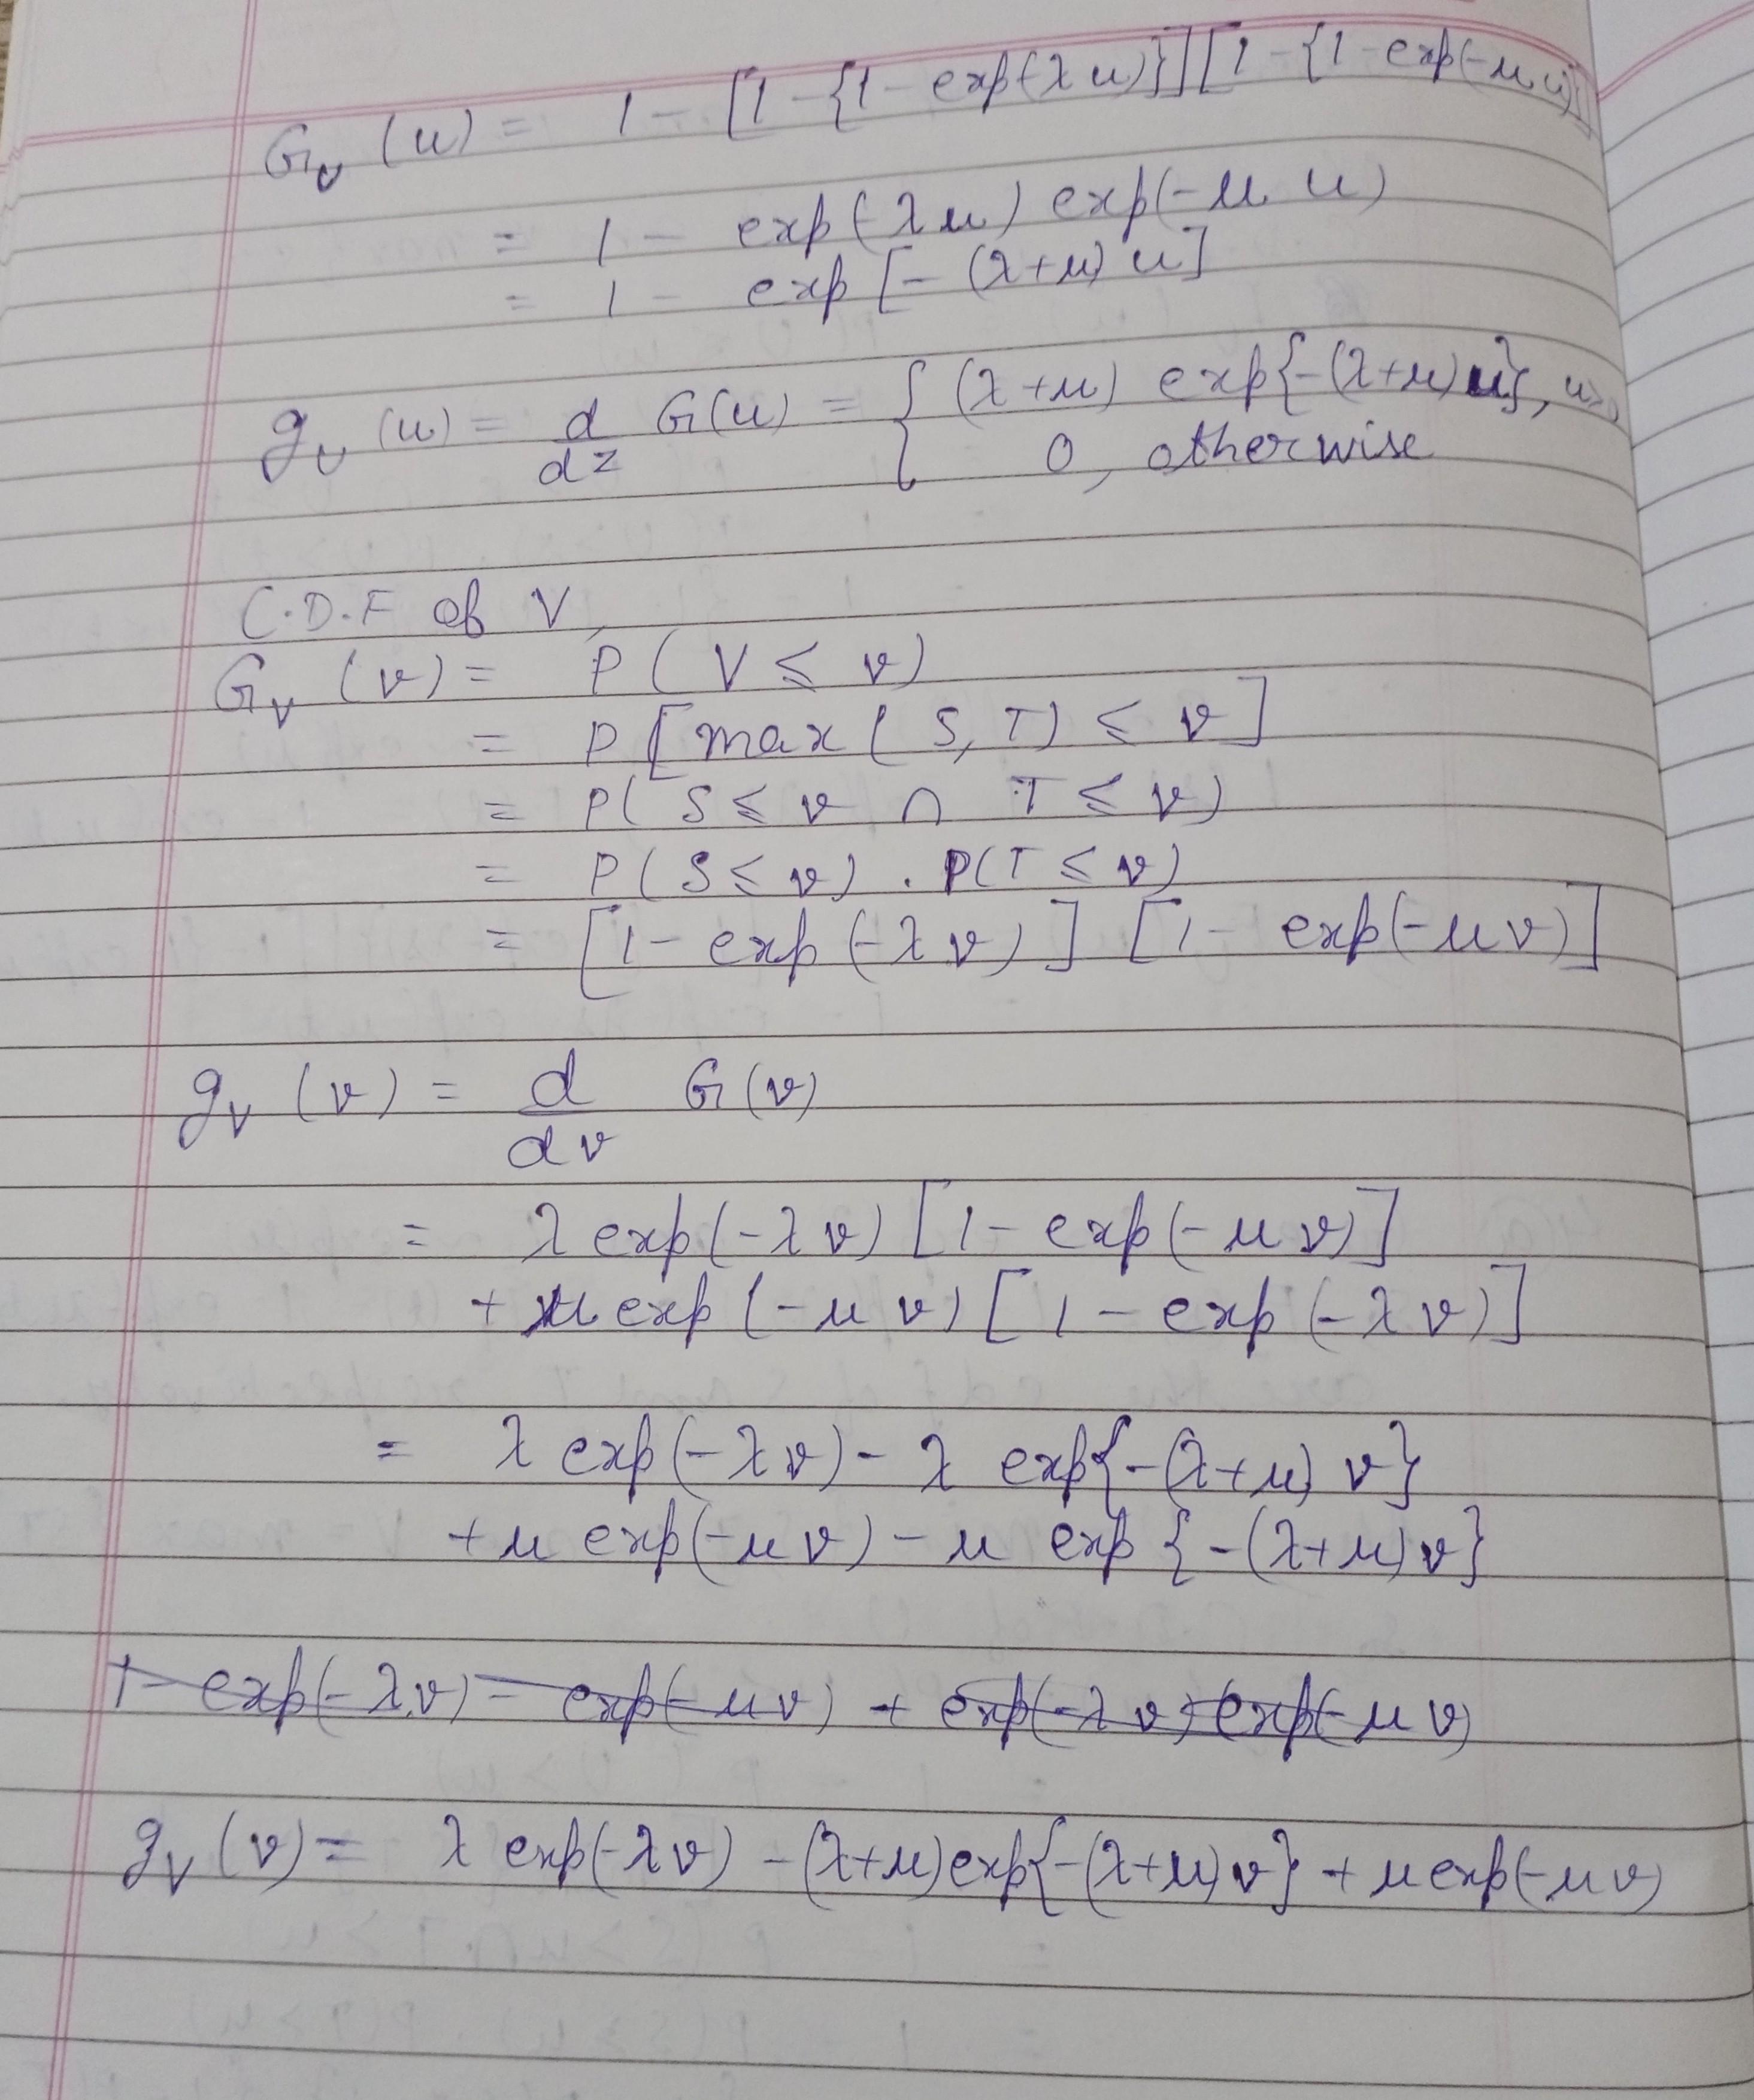 G_U (u) = 1 - [1 - {1 - exp(-λu)}][1 - {1 - exp(-μu)}]
= 1 - exp(-λu) exp(-μ u)
= 1 - exp [- (λ+μ) u]
g_U (u) = d/dz G(u) = { (λ+μ) exp{-(λ+μ)u}, u>
0, otherwise
C.D.F of V,
G_V (v) = P ( V ≤ v)
= P [ max ( S, T) ≤ v ]
= P( S ≤ v ∩ T ≤ v)
= P ( S ≤ v) . P(T ≤ v)
= [1 - exp (-λ v) ] [1 - exp(-μ v)]
g_V (v) = d/dv G (v)
= λ exp(-λ v) [1 - exp(-μ v)]
+ μ exp (-μ v) [ 1 - exp (-λ v)]
= λ exp(-λ v) - λ exp{-(λ+μ) v}
+ μ exp(-μ v) - μ exp {-(λ+μ) v}
1 - exp(-λ v) - exp(-μ v) + exp(-λ v) exp(-μ v)
g_V (v) = λ exp(-λ v) - (λ+μ) exp{-(λ+μ) v} + μ exp(-μ v)